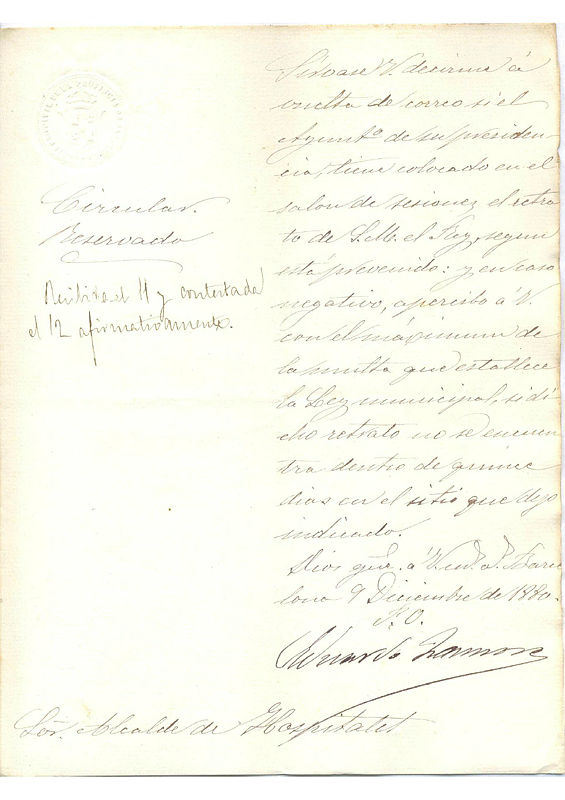 Circular.
Reservado
Recibida el 11 y contestada
el 12 afirmativamente.
Sirvase V. decirme á
vuelta de correo si el
Ayuntº de su presiden-
cia, tiene colocado en el
salon de sesiones, el retra-
to de S.M. el Rey, segun
está prevenido: y en caso
negativo, apercibo á V.
con el máximum de
la multa que establece
la Ley municipal, si di-
cho retrato no se encuen-
tra dentro de quince
dias en el sitio que dejo
indicado.
Dios gue. á V. ms. as. Barce-
lona 9 Diciembre de 1880.
P.O.
Eduardo Zamora
Sor. Alcalde de Hospitalet